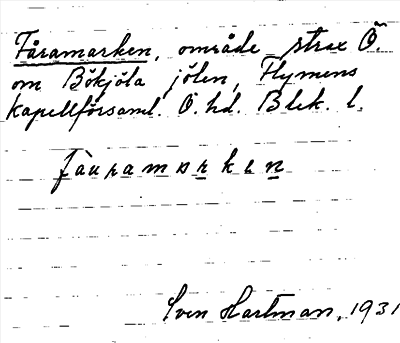 Fåramarken, område strax Ö.
om Bökjöla jölen, Flymens
kapellförsaml. Ö. hd. Blek. l.
fàuramarken
Sven Hartman, 1931